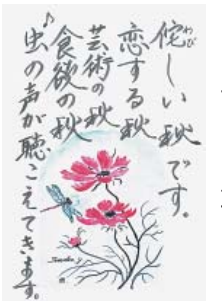 侘しい秋です。
恋する秋
芸術の秋
食欲の秋
♪虫の声が聴こえてきます。